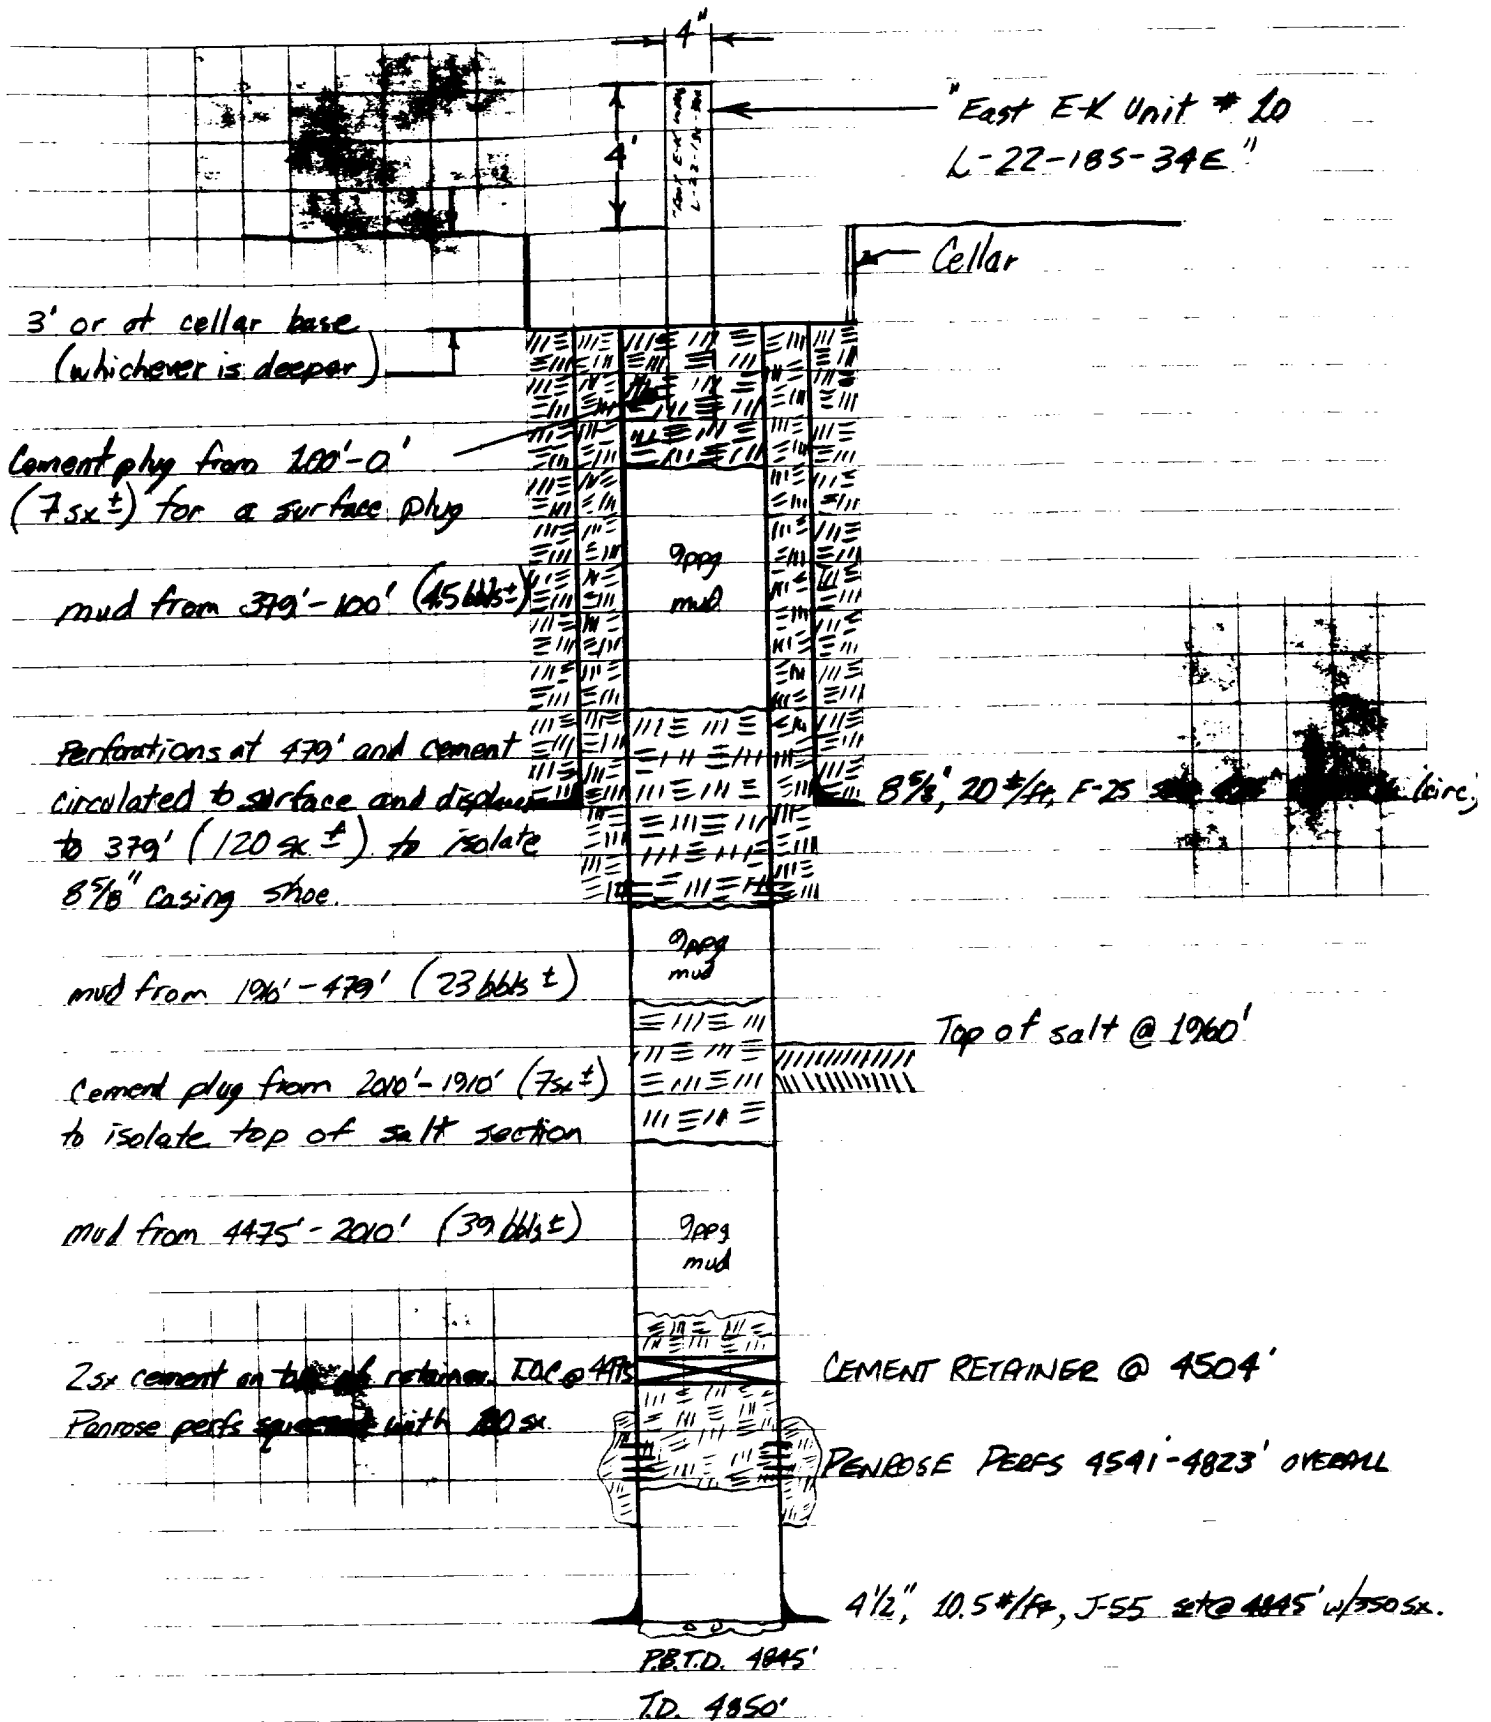 4"
4'
"East E-K Unit # 10
L-22-18S-34E"
Cellar
3' or at cellar base
(whichever is deeper)
Cement plug from 100'-0'
(7sx ±) for a surface plug
9ppg
mud
mud from 379'-100' (4.5 bbls ±)
Perforations at 479' and cement
circulated to surface and displaced
to 379' (120 sx ±) to isolate
8 5/8" casing shoe.
8 5/8", 20 #/ft, F-25 (circ.)
9ppg
mud
mud from 1910'-479' (23 bbls ±)
Top of salt @ 1960'
Cement plug from 2010'-1910' (7sx ±)
to isolate top of salt section
mud from 4475'-2010' (39 bbls ±)
9ppg
mud
2sx cement on top of retainer. TOC @ 4475
CEMENT RETAINER @ 4504'
Penrose perfs squeezed with sx.
PENROSE PERFS 4541'-4823' OVERALL
4 1/2", 10.5 #/ft, J-55 set @ 4845' w/350 sx.
P.B.T.D. 4845'
T.D. 4850'